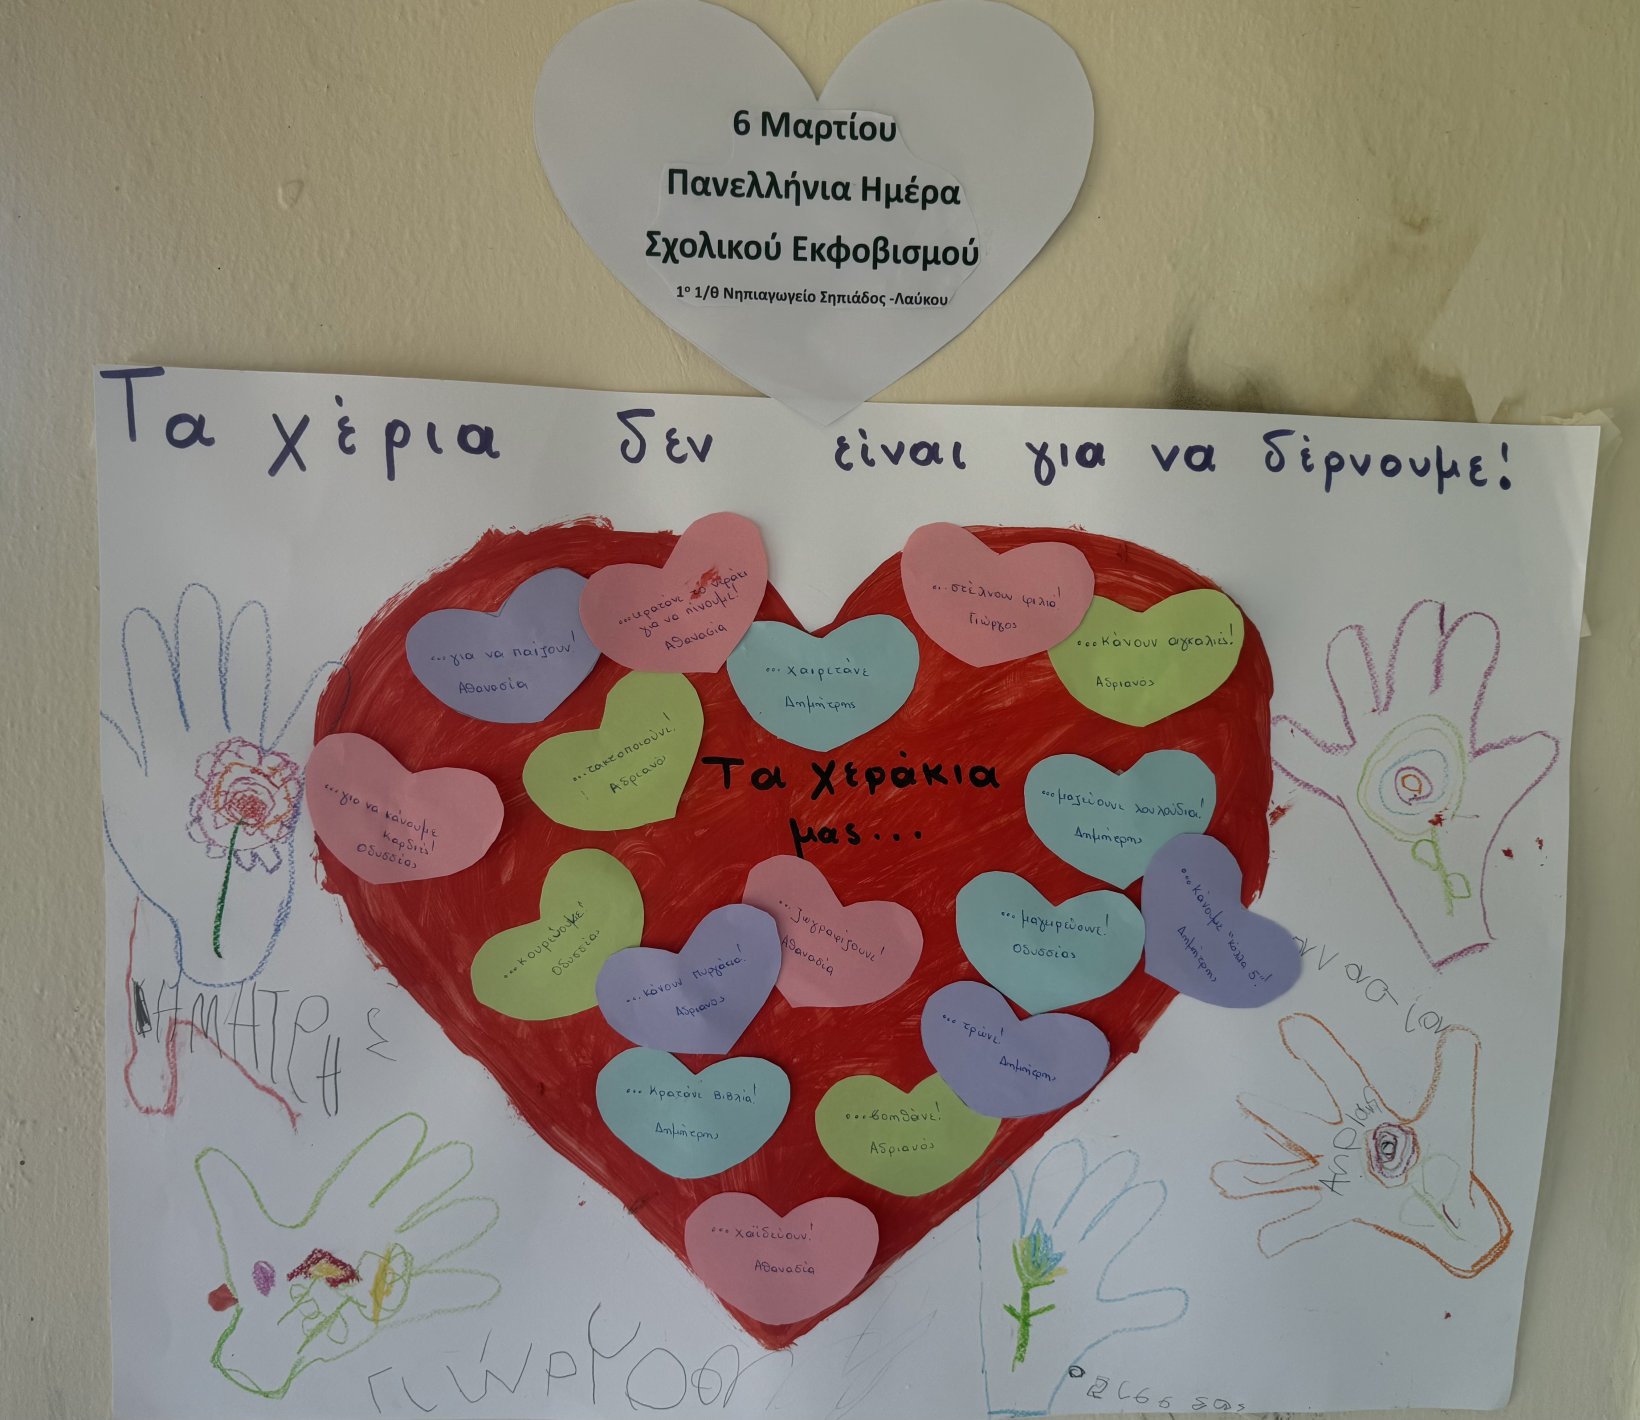 6 Μαρτίου
Πανελλήνια Ημέρα
Σχολικού Εκφοβισμού
1ο 1/θ Νηπιαγωγείο Σηπιάδος -Λαύκου
Τα χέρια δεν είναι για να δέρνουμε!
...κρατάνε το νεράκι
για να πίνουμε!
Αθανασία
...στέλνουν φιλιά!
Γιώργος
...για να παίζουν!
Αθανασία
...χαιρετάνε
Δημήτρης
...κάνουν αγκαλιές!
Αδριανός
...τακτοποιούνε!
Αδριανός
Τα χεράκια
μας...
...για να κάνουμε
καρδιές!
Οδυσσέας
...μαζεύουνε λουλούδια!
Δημήτρης
...κουρεύουμε!
Οδυσσέας
...ζωγραφίζουνε!
Αθανασία
...μαγειρεύουνε!
Οδυσσέας
...κάνουμε "κόλλα 5"!
Δημήτρης
...κάνουν πυργάκια!
Αδριανός
...τρώνε!
Δημήτρης
...κρατάνε βιβλία!
Δημήτρης
...βοηθάνε!
Αδριανός
...χαϊδεύουν!
Αθανασία
ΔΗΜΗΤΡΗΣ
ΓΙΩΡΓΟΣ